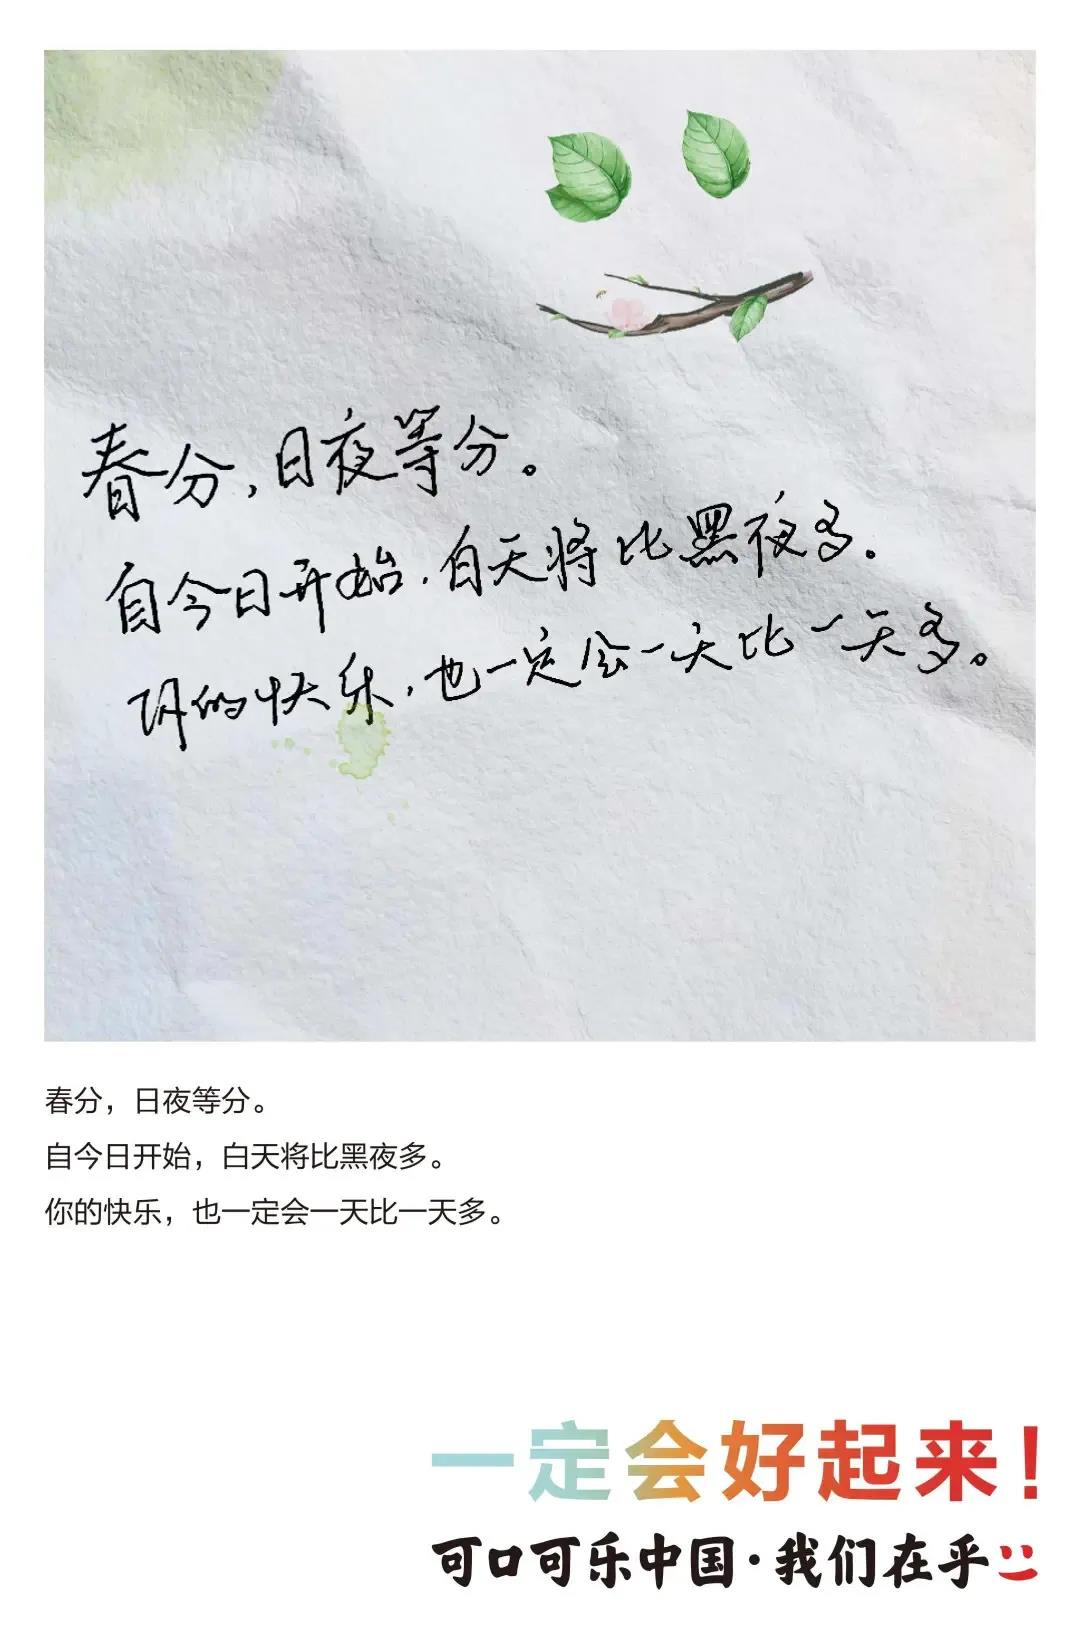 春分，日夜等分。
自今日开始，白天将比黑夜多。
你的快乐，也一定会一天比一天多。
春分，日夜等分。
自今日开始，白天将比黑夜多。
你的快乐，也一定会一天比一天多。
一定会好起来！
可口可乐中国·我们在乎